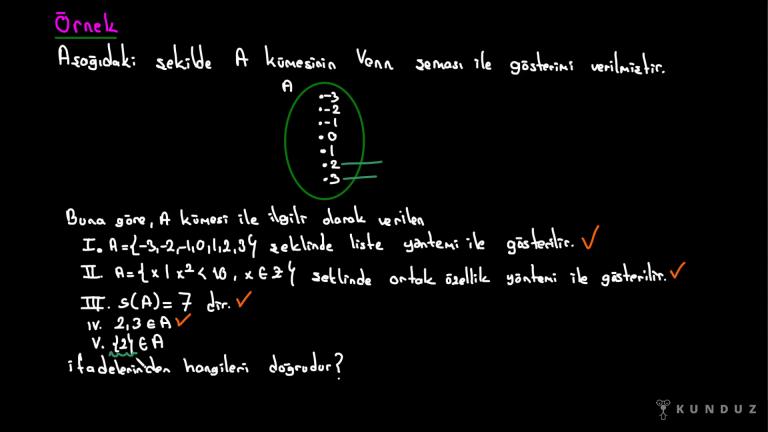 Örnek
Aşağıdaki şekilde A kümesinin Venn şeması ile gösterimi verilmiştir.
A
.-3
.-2
.-1
.0
.1
.2
.3
Buna göre, A kümesi ile ilgili olarak verilen
I. A={-3,-2,-1,0,1,2,3} şeklinde liste yöntemi ile gösterilir. ✓
II. A={x | x²<10, x∈Z} şeklinde ortak özellik yöntemi ile gösterilir. ✓
III. s(A)= 7 dir. ✓
IV. 2,3 ∈ A ✓
V. {2} ∈ A
ifadelerinden hangileri doğrudur?
KUNDUZ